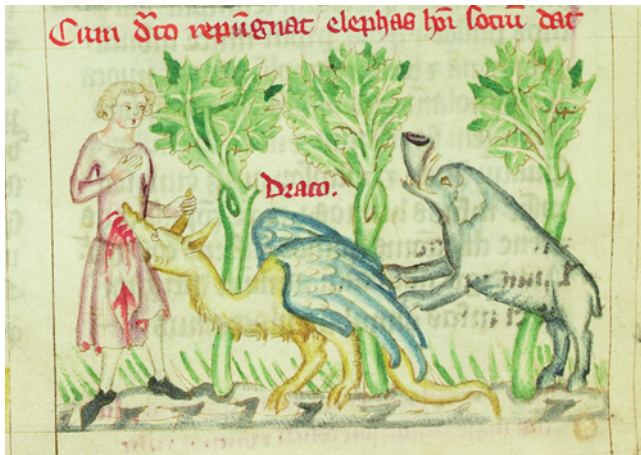 Cum dͣco repūgnat elephas hōi sociū dat
Draco.